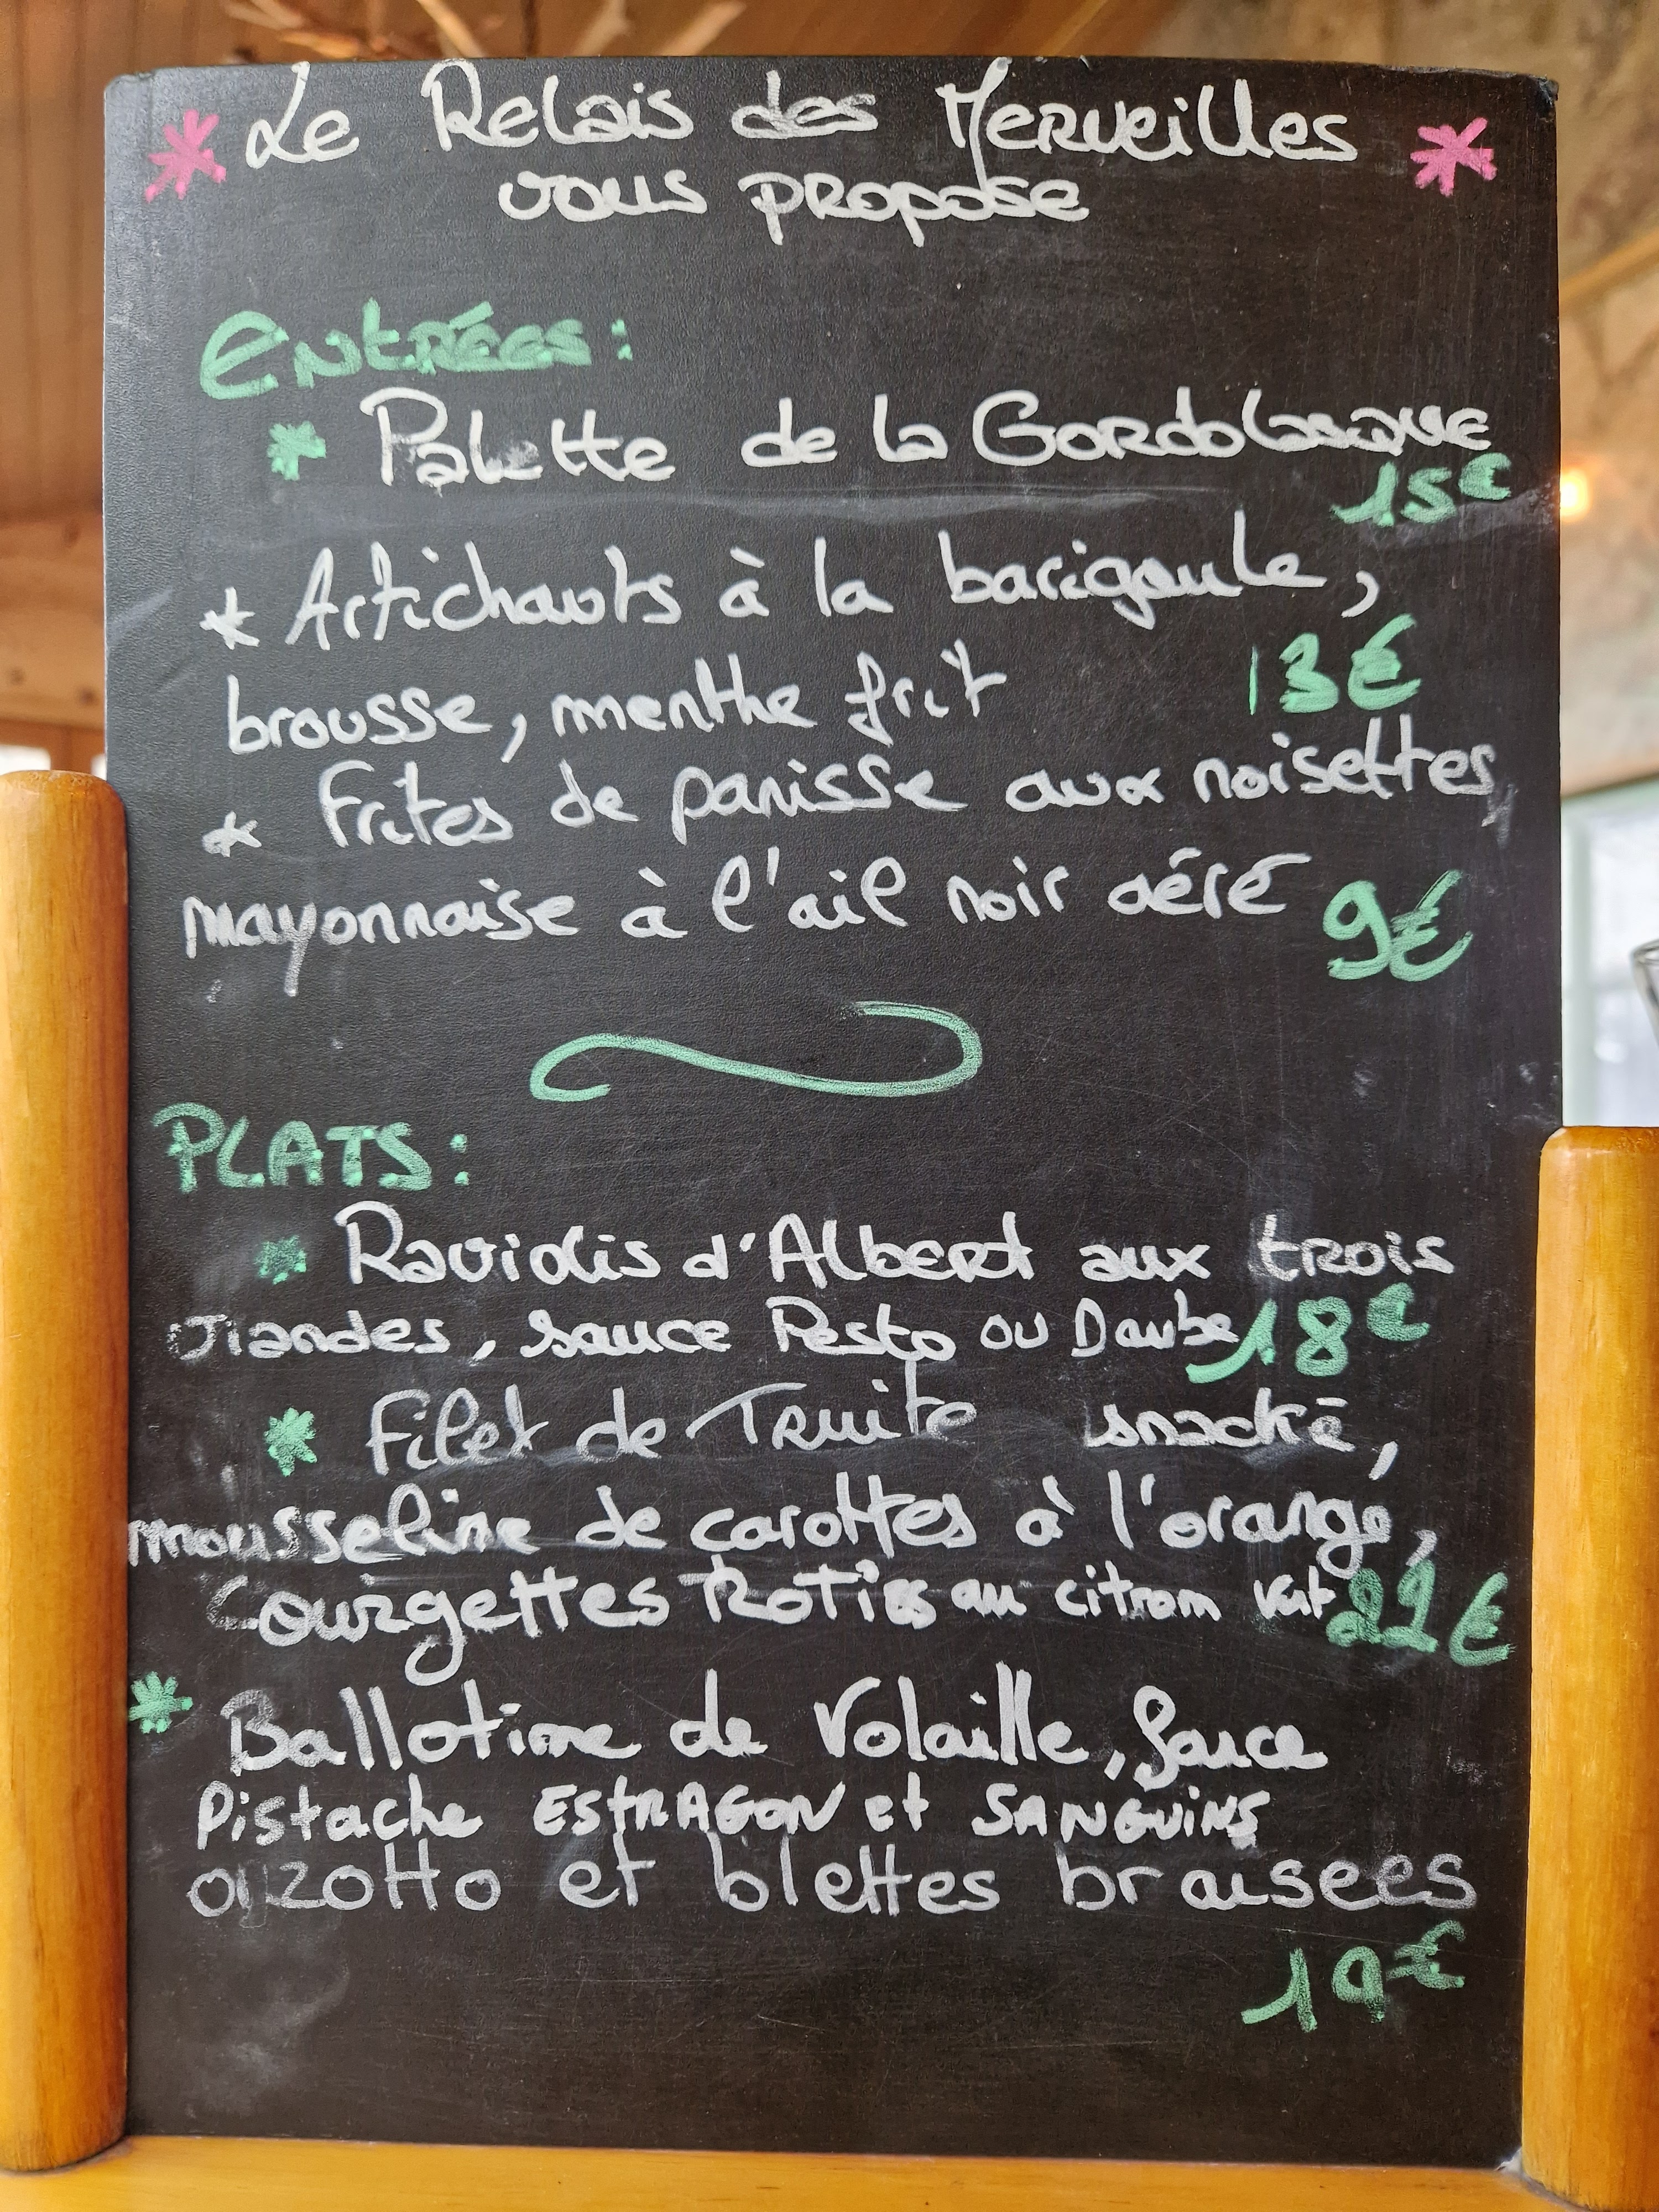 * Le Relais des Merveilles *
vous propose
Entrées :
* Palette de la Gordolasque
15€
* Artichauts à la barigoule,
brousse, menthe frit 13€
* Frites de panisse aux noisettes,
mayonnaise à l'ail noir aéré 9€
PLATS :
* Raviolis d'Albert aux trois
viandes, sauce Pesto ou Daube 18€
* Filet de Truite snacké,
mousseline de carottes à l'orange,
Courgettes Roties au citron vert €
* Ballotine de Volaille, Sauce
Pistache ESTRAGON et SANGUINS
orzotto et blettes braisees
19€